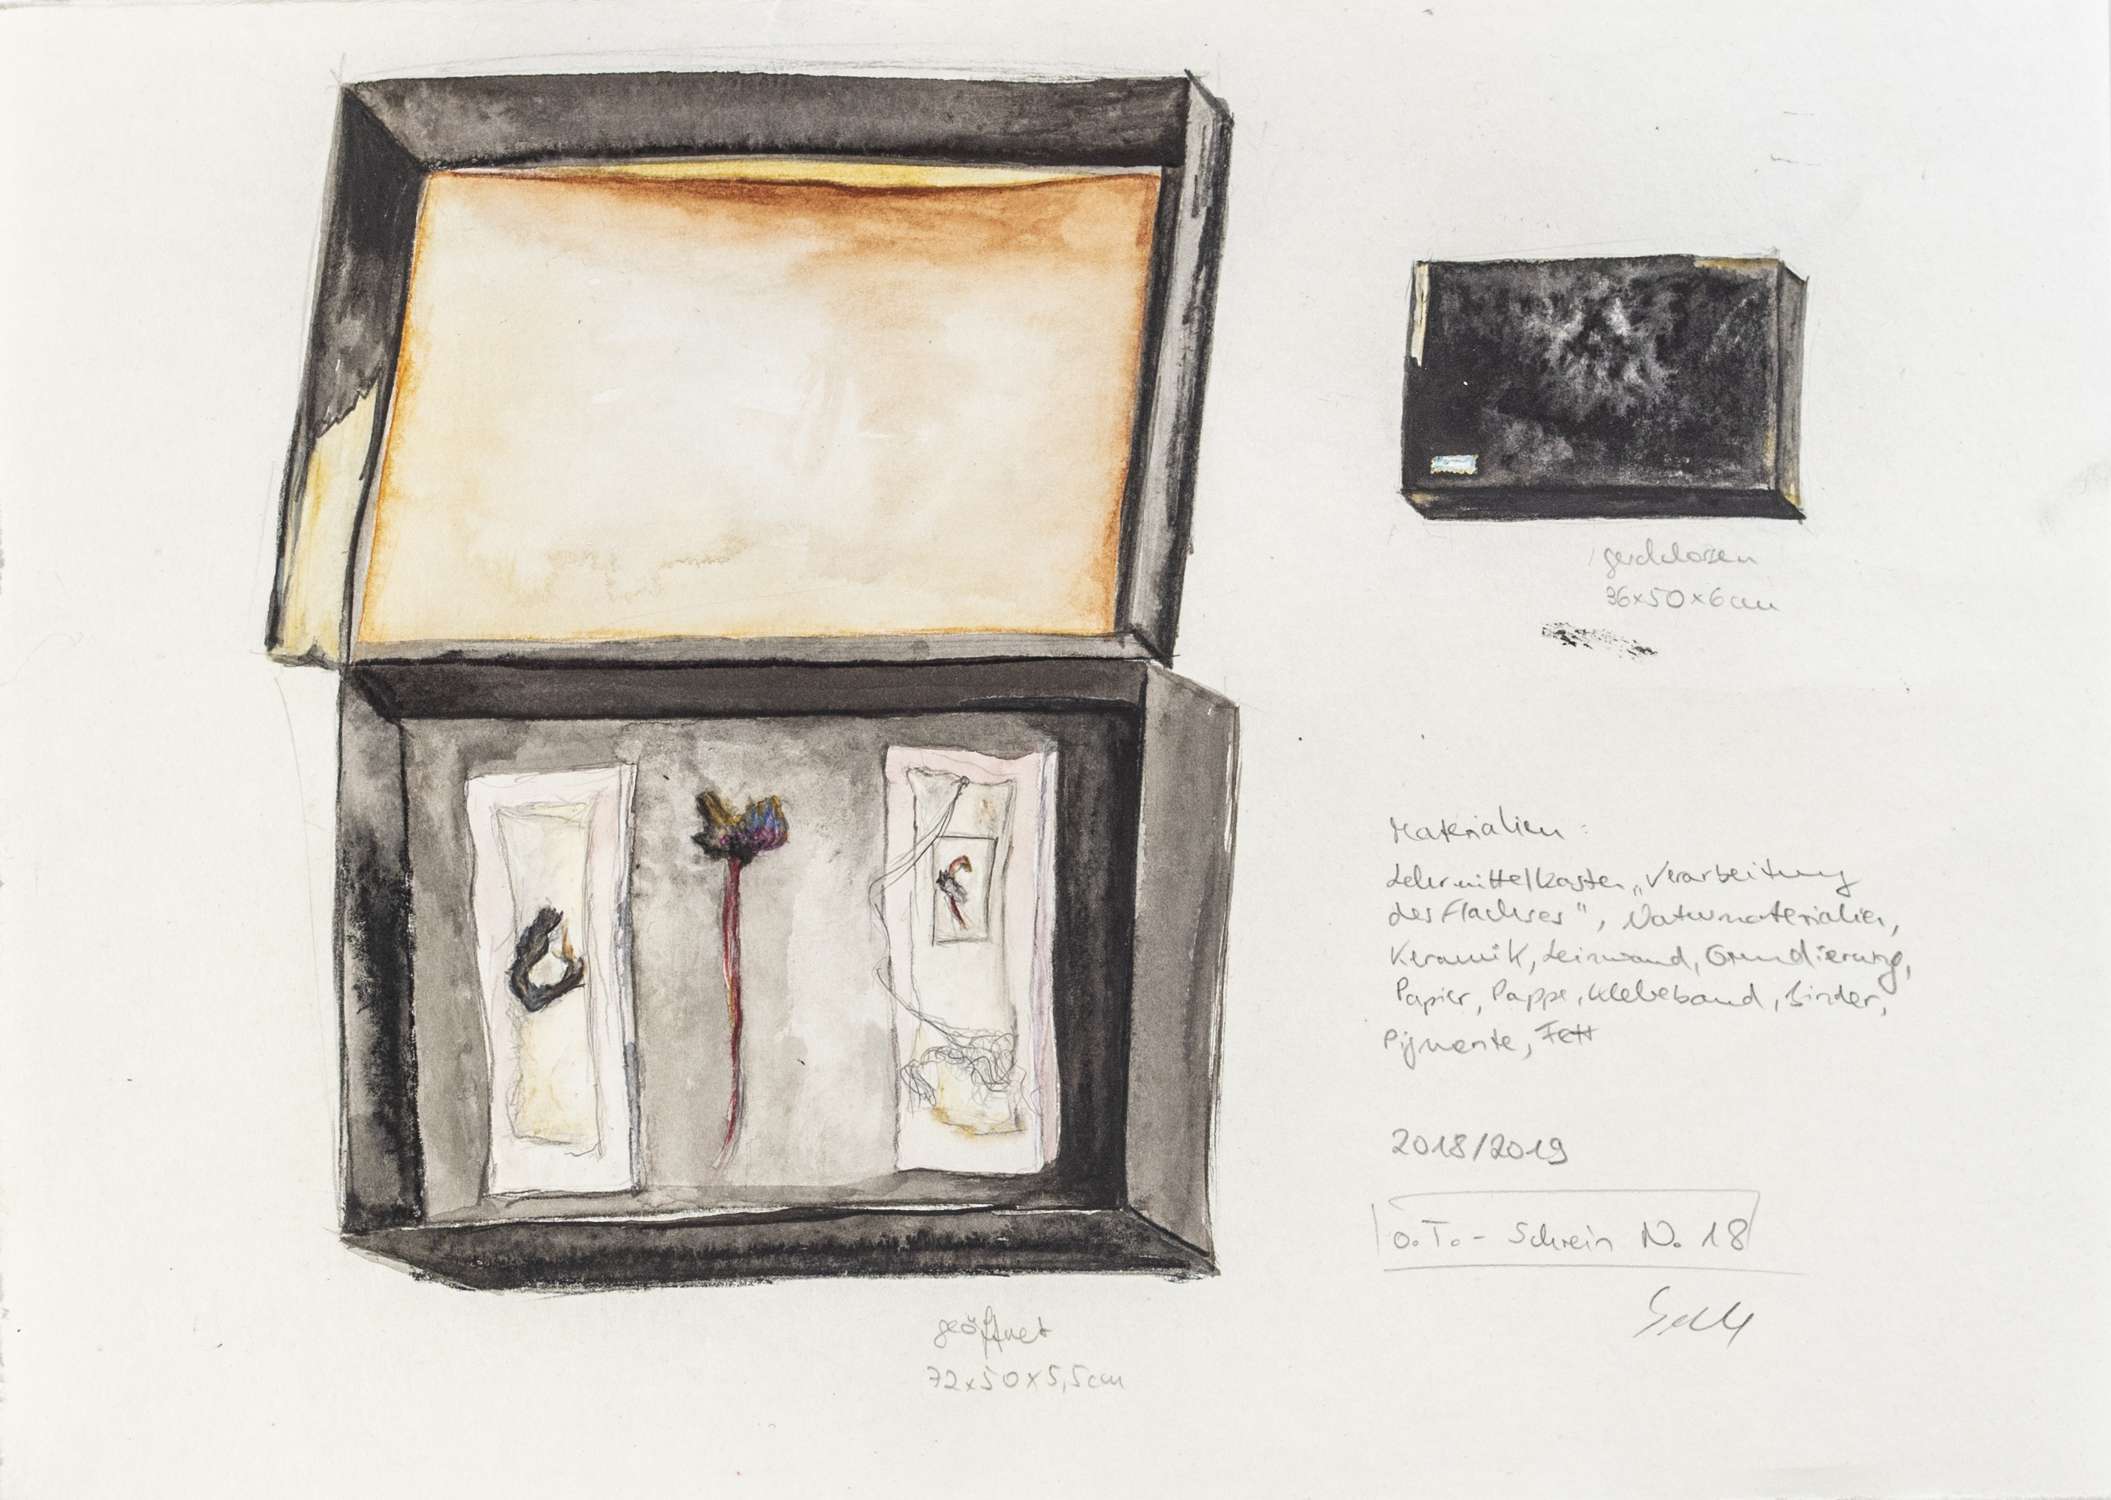 geschlossen
36x50x6cm
Materialien:
Lehrmittelkasten „Verarbeitung
des Flachses", Naturmaterialien,
Keramik, Leinwand, Grundierung,
Papier, Pappe, Klebeband, Binder,
Pigmente, Fett
2018/2019
o.T.- Schrein N. 18
geöffnet
72x50x5,5cm